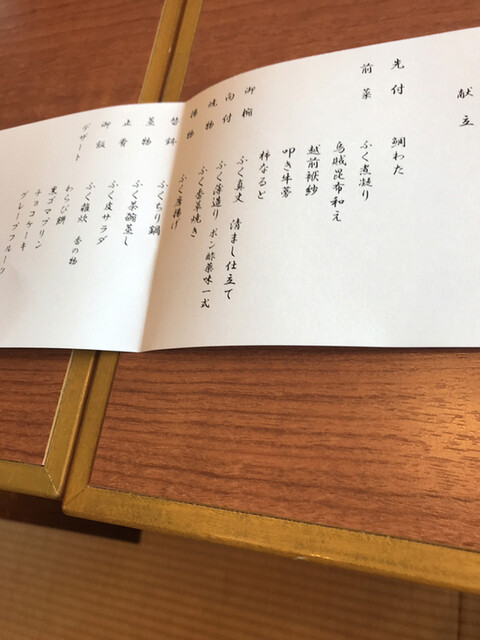 献立
先付 鯛わた
前菜 ふく煮凝り
烏賊昆布和え
越前袱紗
叩き牛蒡
柿なると
御椀 ふく真丈 清まし仕立て
向付 ふく薄造り ポン酢薬味一式
焼物 ふく香草焼き
揚物 ふく唐揚げ
替鉢 ふくちり鍋
蒸物 ふく茶碗蒸し
止肴 ふく皮サラダ
御飯 ふく雑炊 香の物
デザート わらび餅
黒ゴマプリン
チョコケーキ
グレープフルーツ